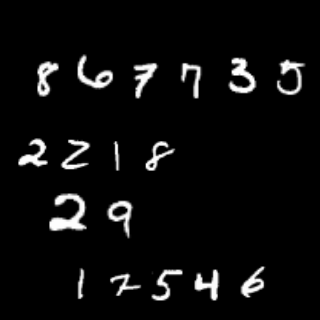 867735
2218
29
12546